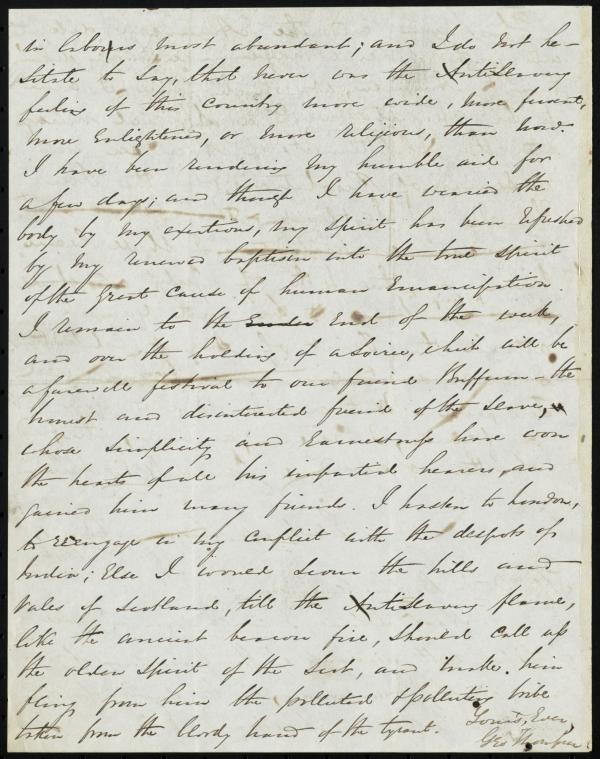 in labours most abundant; and I do not he-
sitate to say, that never was the AntiSlavery
feeling of this country more wide, more fervent,
more enlightened, or more religious, than now.
I have been rendering my humble aid for
a few days; and though I have wearied the
body by my exertions, my spirit has been refreshed
by my renewed baptism into the true spirit
of the great cause of human Emancipation.
I remain to the End of the week,
and over the holding of a Soiree, which will be
a farewell festival to our friend Buffum - the
honest and disinterested friend of the slave,
whose simplicity and Earnestness have won
the hearts of all his impartial hearers, and
gained him many friends. I hasten to London,
to reengage in my conflict with the despots of
India; Else I would scour the hills and
vales of Scotland, till the AntiSlavery flame,
like the ancient beacon fire, should call up
the olden spirit of the Scot, and make him
fling from him the polluted & polluting bribe
taken from the bloody hand of the tyrant.
Yours, Ever,
Geo Thompson